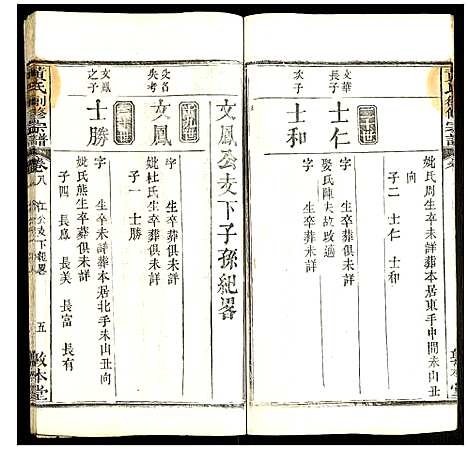 妣氏周生卒未詳葬本居東手中間未山丑
向
子二 士仁 士和
二十世
文華
長子
士仁
字 生卒葬俱未詳
娶氏陳夫故改適
次子
士和
字 生卒葬俱未詳
文鳳公支下子孫紀畧
十九世
父名
失考
文鳳
字 生卒葬俱未詳
妣杜氏生卒葬俱未詳
子一 士勝
二十世
文鳳
之子
士勝
字 生卒未詳葬本居北手未山丑向
妣氏熊生卒葬俱未詳
子四 長鳳 長美 長富 長有
黃氏創修宗譜
卷八
江公支下親畧
五
敦本堂